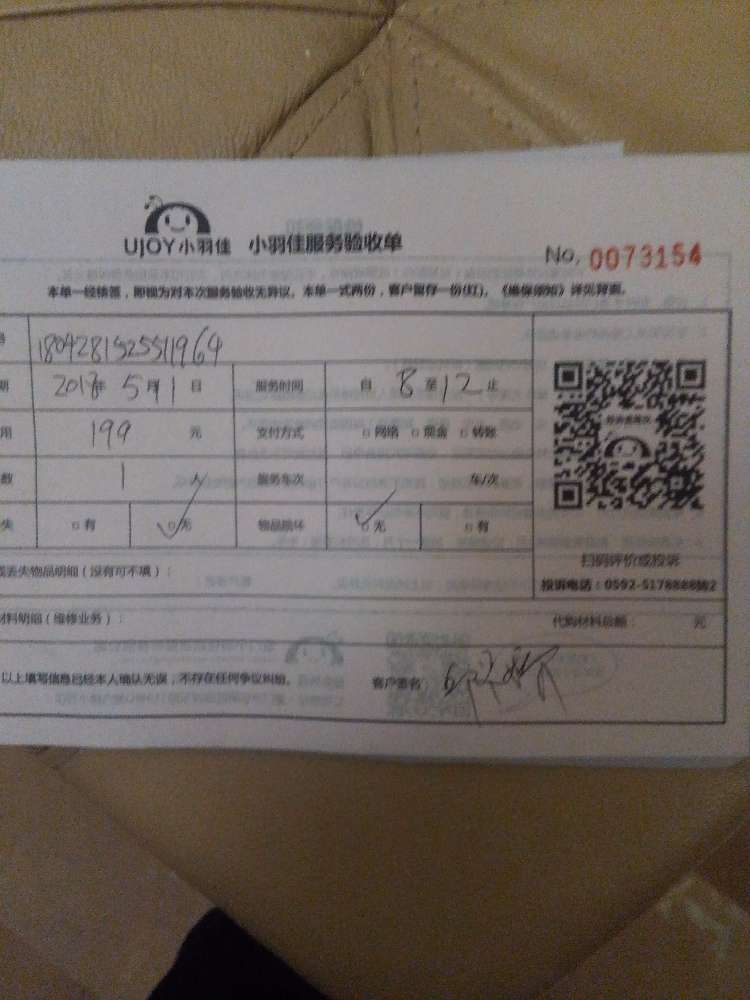 UJOY小羽佳 小羽佳服务验收单
No. 0073154
本单一经签签，即视为对本次服务验收无异议。本单一式两份，客户留存一份(红)。《维保须知》详见背面。
号 18042815255 1964
期 2018年5月1日 服务时间 自 8 至 12 止
用 199 元 支付方式 □网络 □现金 □转账
数 1 人 服务车次 车/次
失 □有 □无 物品损坏 □无 □有
扫码评价或投诉
投诉电话：0592-5178888转2
或丢失物品明细（没有可不填）：
材料明细（维修业务）： 代购材料总额： 元
以上填写信息已经本人确认无误，不存在任何争议纠纷。 客户签名：